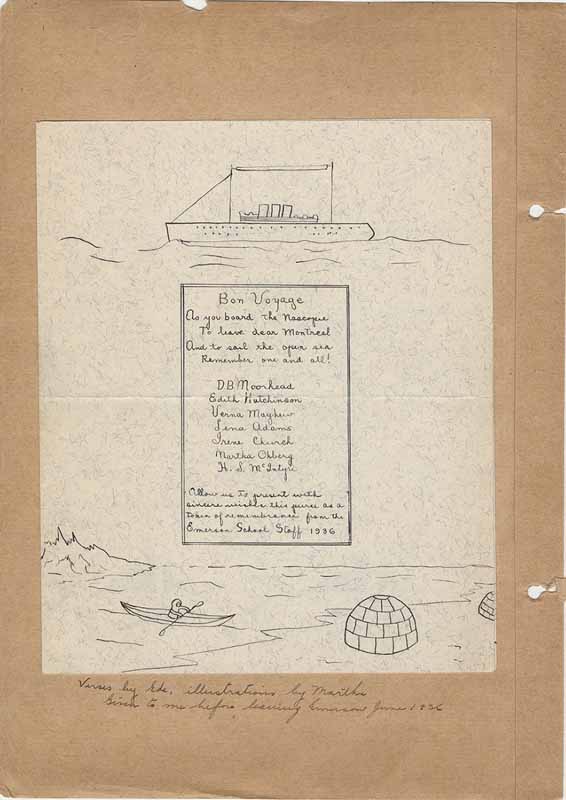 Bon Voyage
As you board the Nascopie
To leave dear Montreal
And to sail the open sea
Remember one and all!
D.B Moorhead
Edith Hutchinson
Verna Mayhew
Lena Adams
Irene Church
Martha Ohberg
H. S. McIntyre
Allow us to present with
sincere wishes this purse as a
token of remembrance from the
Emerson School Staff 1936
Verses by Ede, illustrations by Martha
Given to me before leaving Emerson June 1936